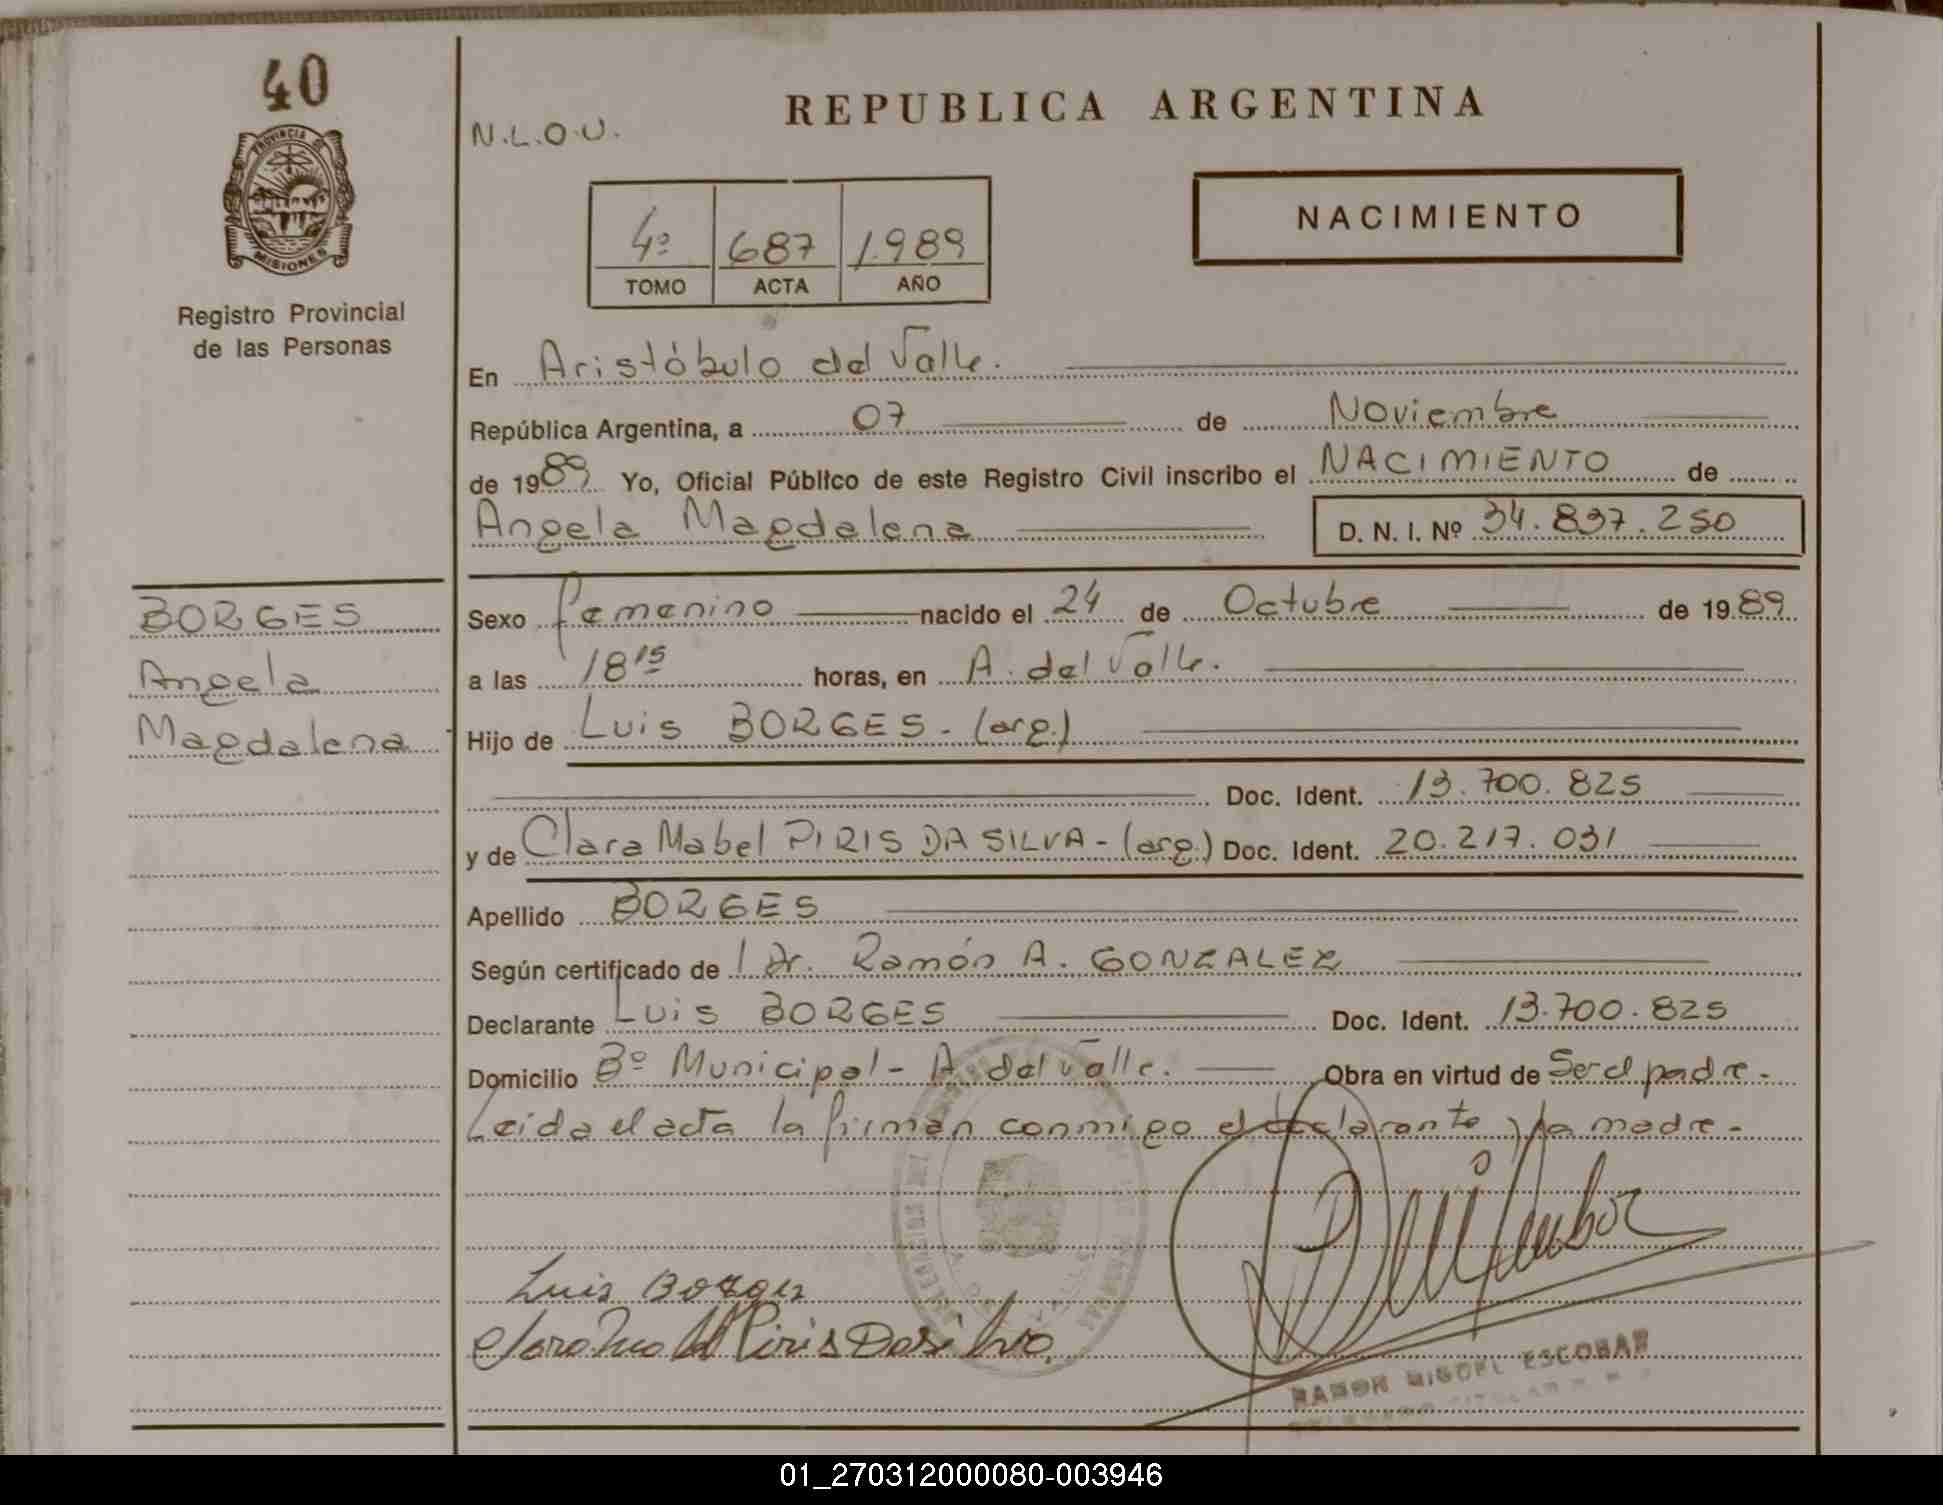 40
PROVINCIA DE
MISIONES
Registro Provincial
de las Personas
BORGES
Angela
Magdalena
N.L.O.U.
REPUBLICA ARGENTINA
4º 687 1.989
TOMO ACTA AÑO
NACIMIENTO
En Aristóbulo del Valle.
República Argentina, a 07 de Noviembre
de 1989. Yo, Oficial Público de este Registro Civil inscribo el NACIMIENTO de
Angela Magdalena D. N. I. Nº 34.837.250
Sexo femenino nacido el 24 de Octubre de 1989
a las 18 15 horas, en A. del Valle.
Hijo de Luis BORGES - (arg.)
Doc. Ident. 13.700.825
y de Clara Mabel PIRIS DA SILVA - (arg.) Doc. Ident. 20.217.031
Apellido BORGES
Según certificado de / Dr. Ramón A. GONZALEZ
Declarante Luis BORGES Doc. Ident. 13.700.825
Domicilio Bº Municipal - A. del Valle. Obra en virtud de Ser el padre.-
Leida el acta la firman conmigo el declarante y la madre.-
Luis Borges
Piris Dasilva
RAMON MIGUEL ESCOBAR
01_270312000080-003946